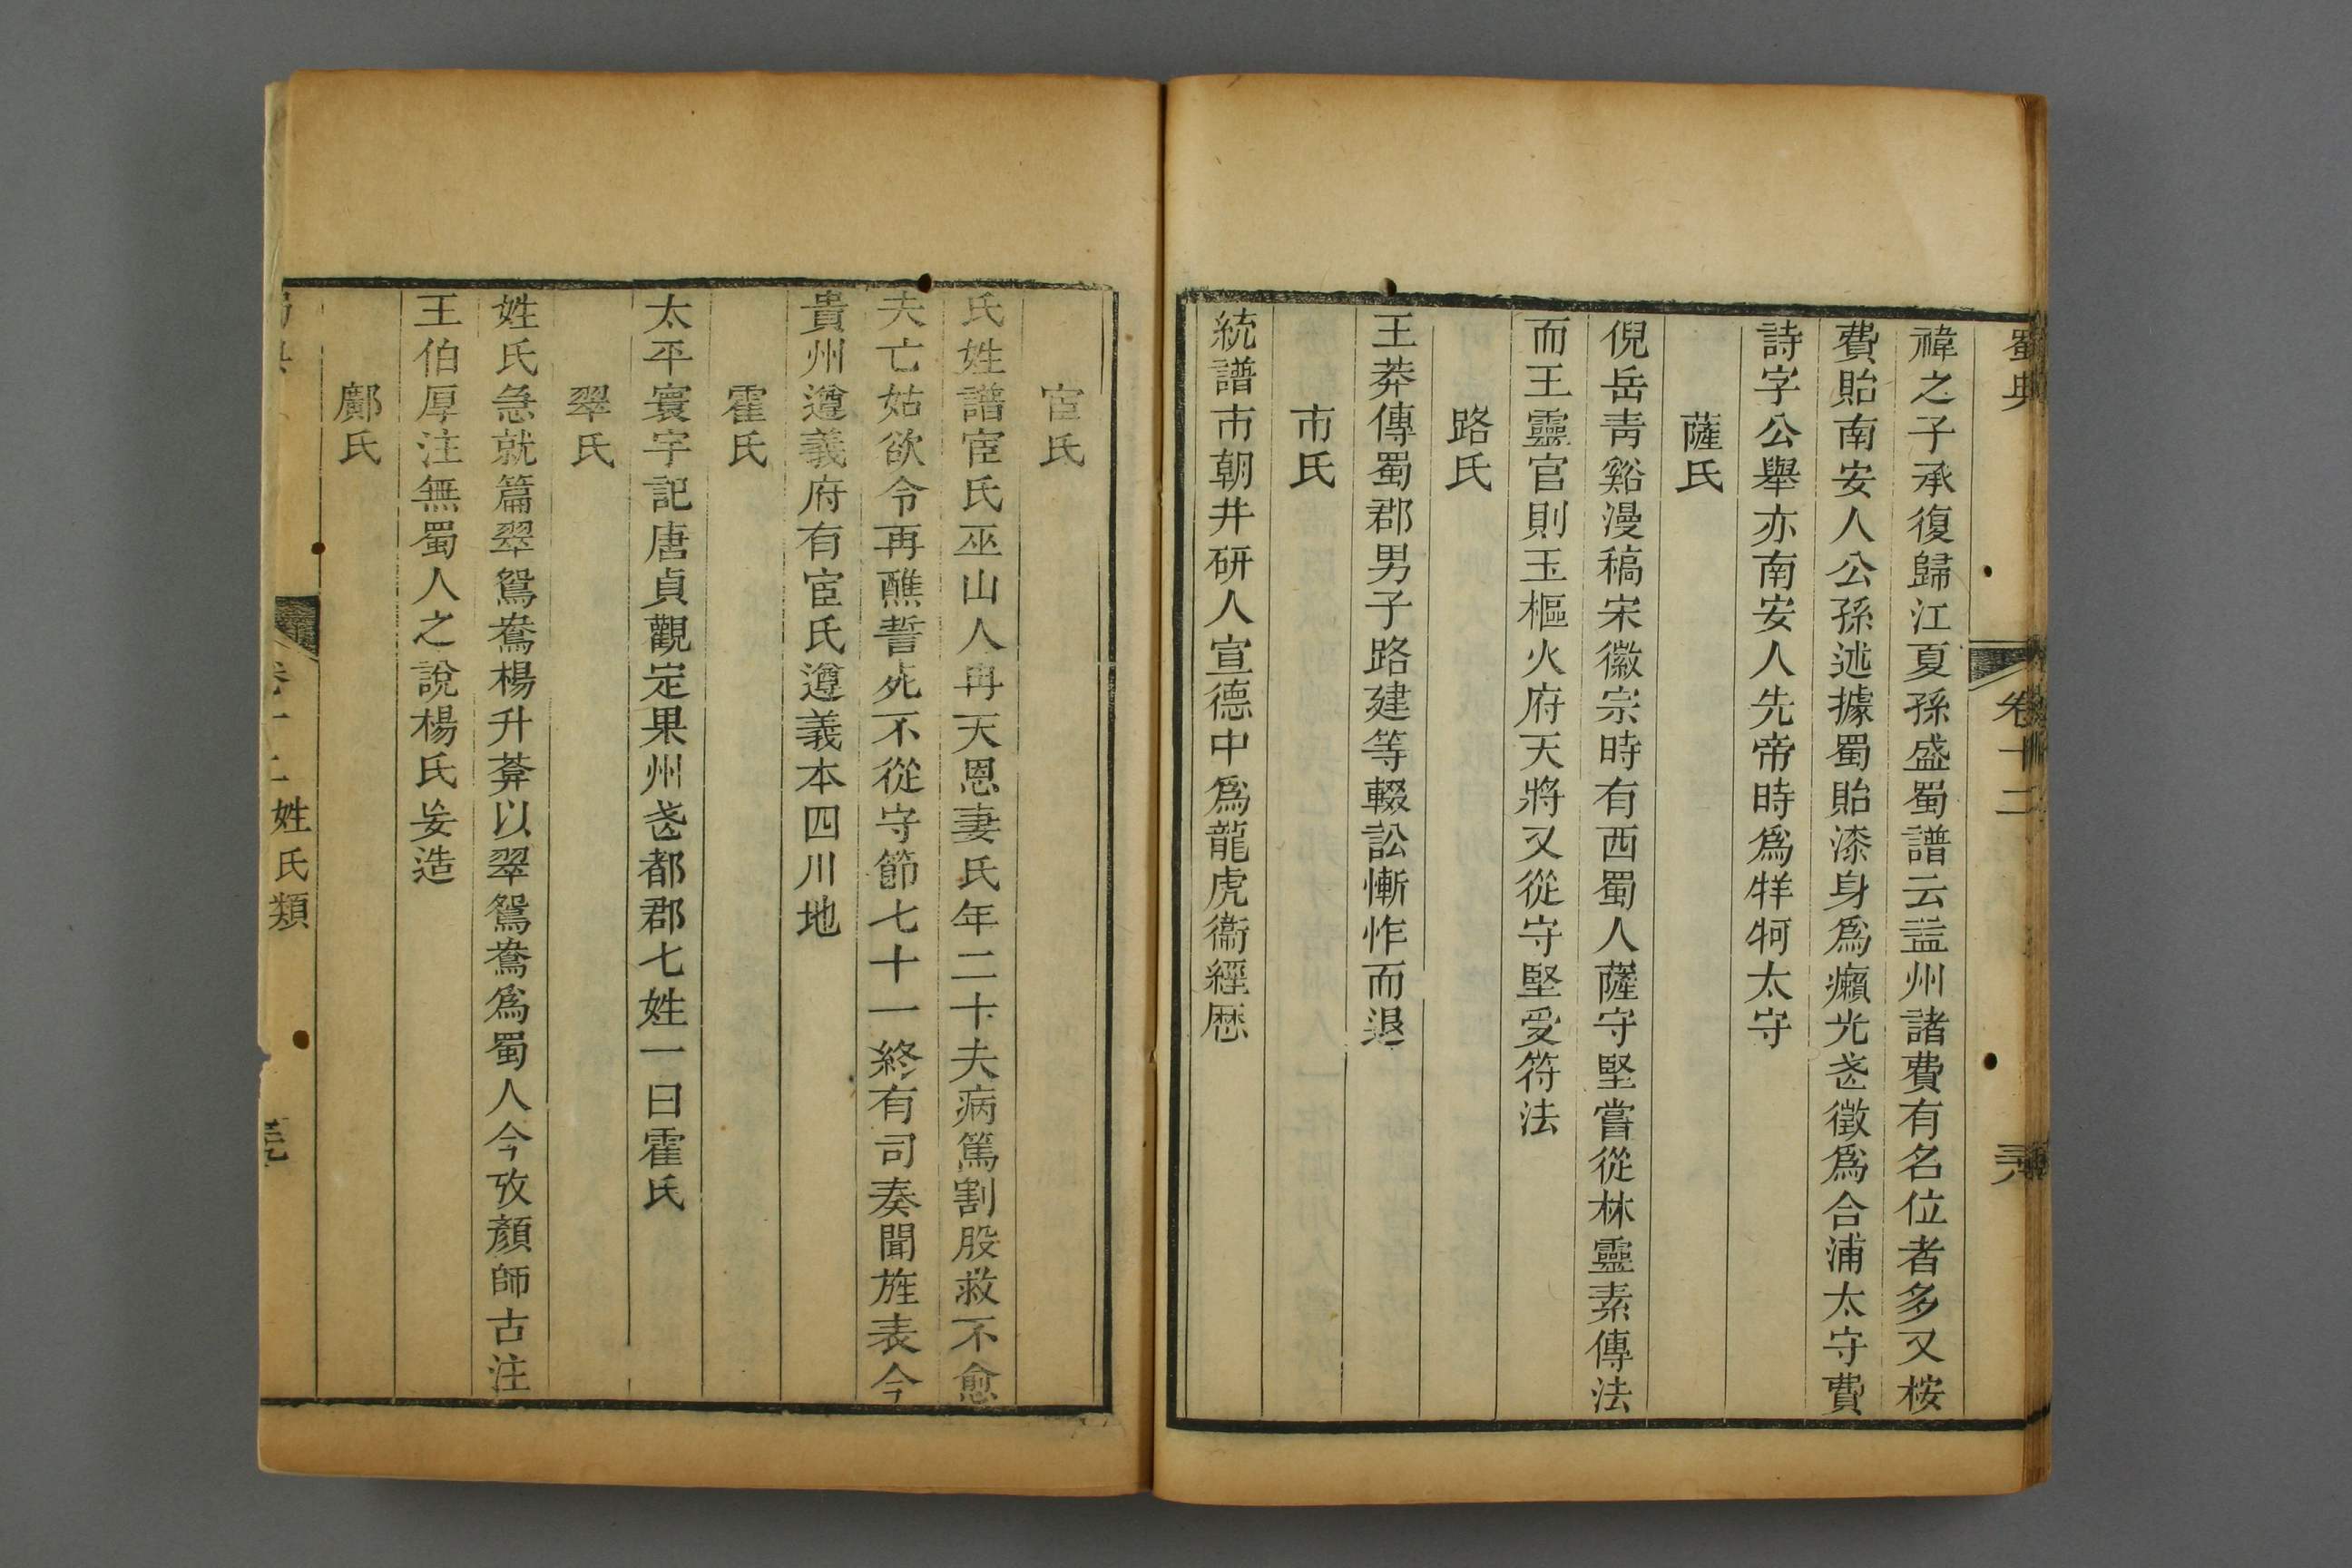 蜀典 卷十二
禕之子承復歸江夏孫盛蜀譜云益州諸費有名位者多又桉
費貽南安人公孫述據蜀貽漆身為癩光武徵為合浦太守費
詩字公舉亦南安人先帝時為牂牁太守
薩氏
倪岳靑谿漫稿宋徽宗時有西蜀人薩守堅嘗從林靈素傳法
而王靈官則玉樞火府天將又從守堅受符法
路氏
王莽傳蜀郡男子路建等輟訟慚怍而退
市氏
統譜市朝井研人宣德中為龍虎衞經歷
宦氏
氏姓譜宦氏巫山人冉天恩妻氏年二十夫病篤割股救不愈
夫亡姑欲令再醮誓死不從守節七十一終有司奏聞旌表今
貴州遵義府有宦氏遵義本四川地
霍氏
太平寰宇記唐貞觀定果州武都郡七姓一曰霍氏
翠氏
姓氏急就篇翠鴛鴦楊升菴以翠鴛鴦為蜀人今攷顏師古注
王伯厚注無蜀人之說楊氏妄造
鄺氏
姓氏類